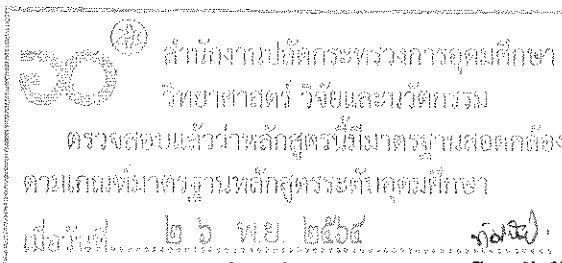 สำนักงานปลัดกระทรวงการอุดมศึกษา
วิทยาศาสตร์ วิจัยและนวัตกรรม
ตรวจสอบแล้วว่าหลักสูตรนี้มีมาตรฐานสอดคล้อง
ตามเกณฑ์มาตรฐานหลักสูตรระดับอุดมศึกษา
เมื่อวันที่ ๒ ๖ พ.ย. ๒๕๖๔